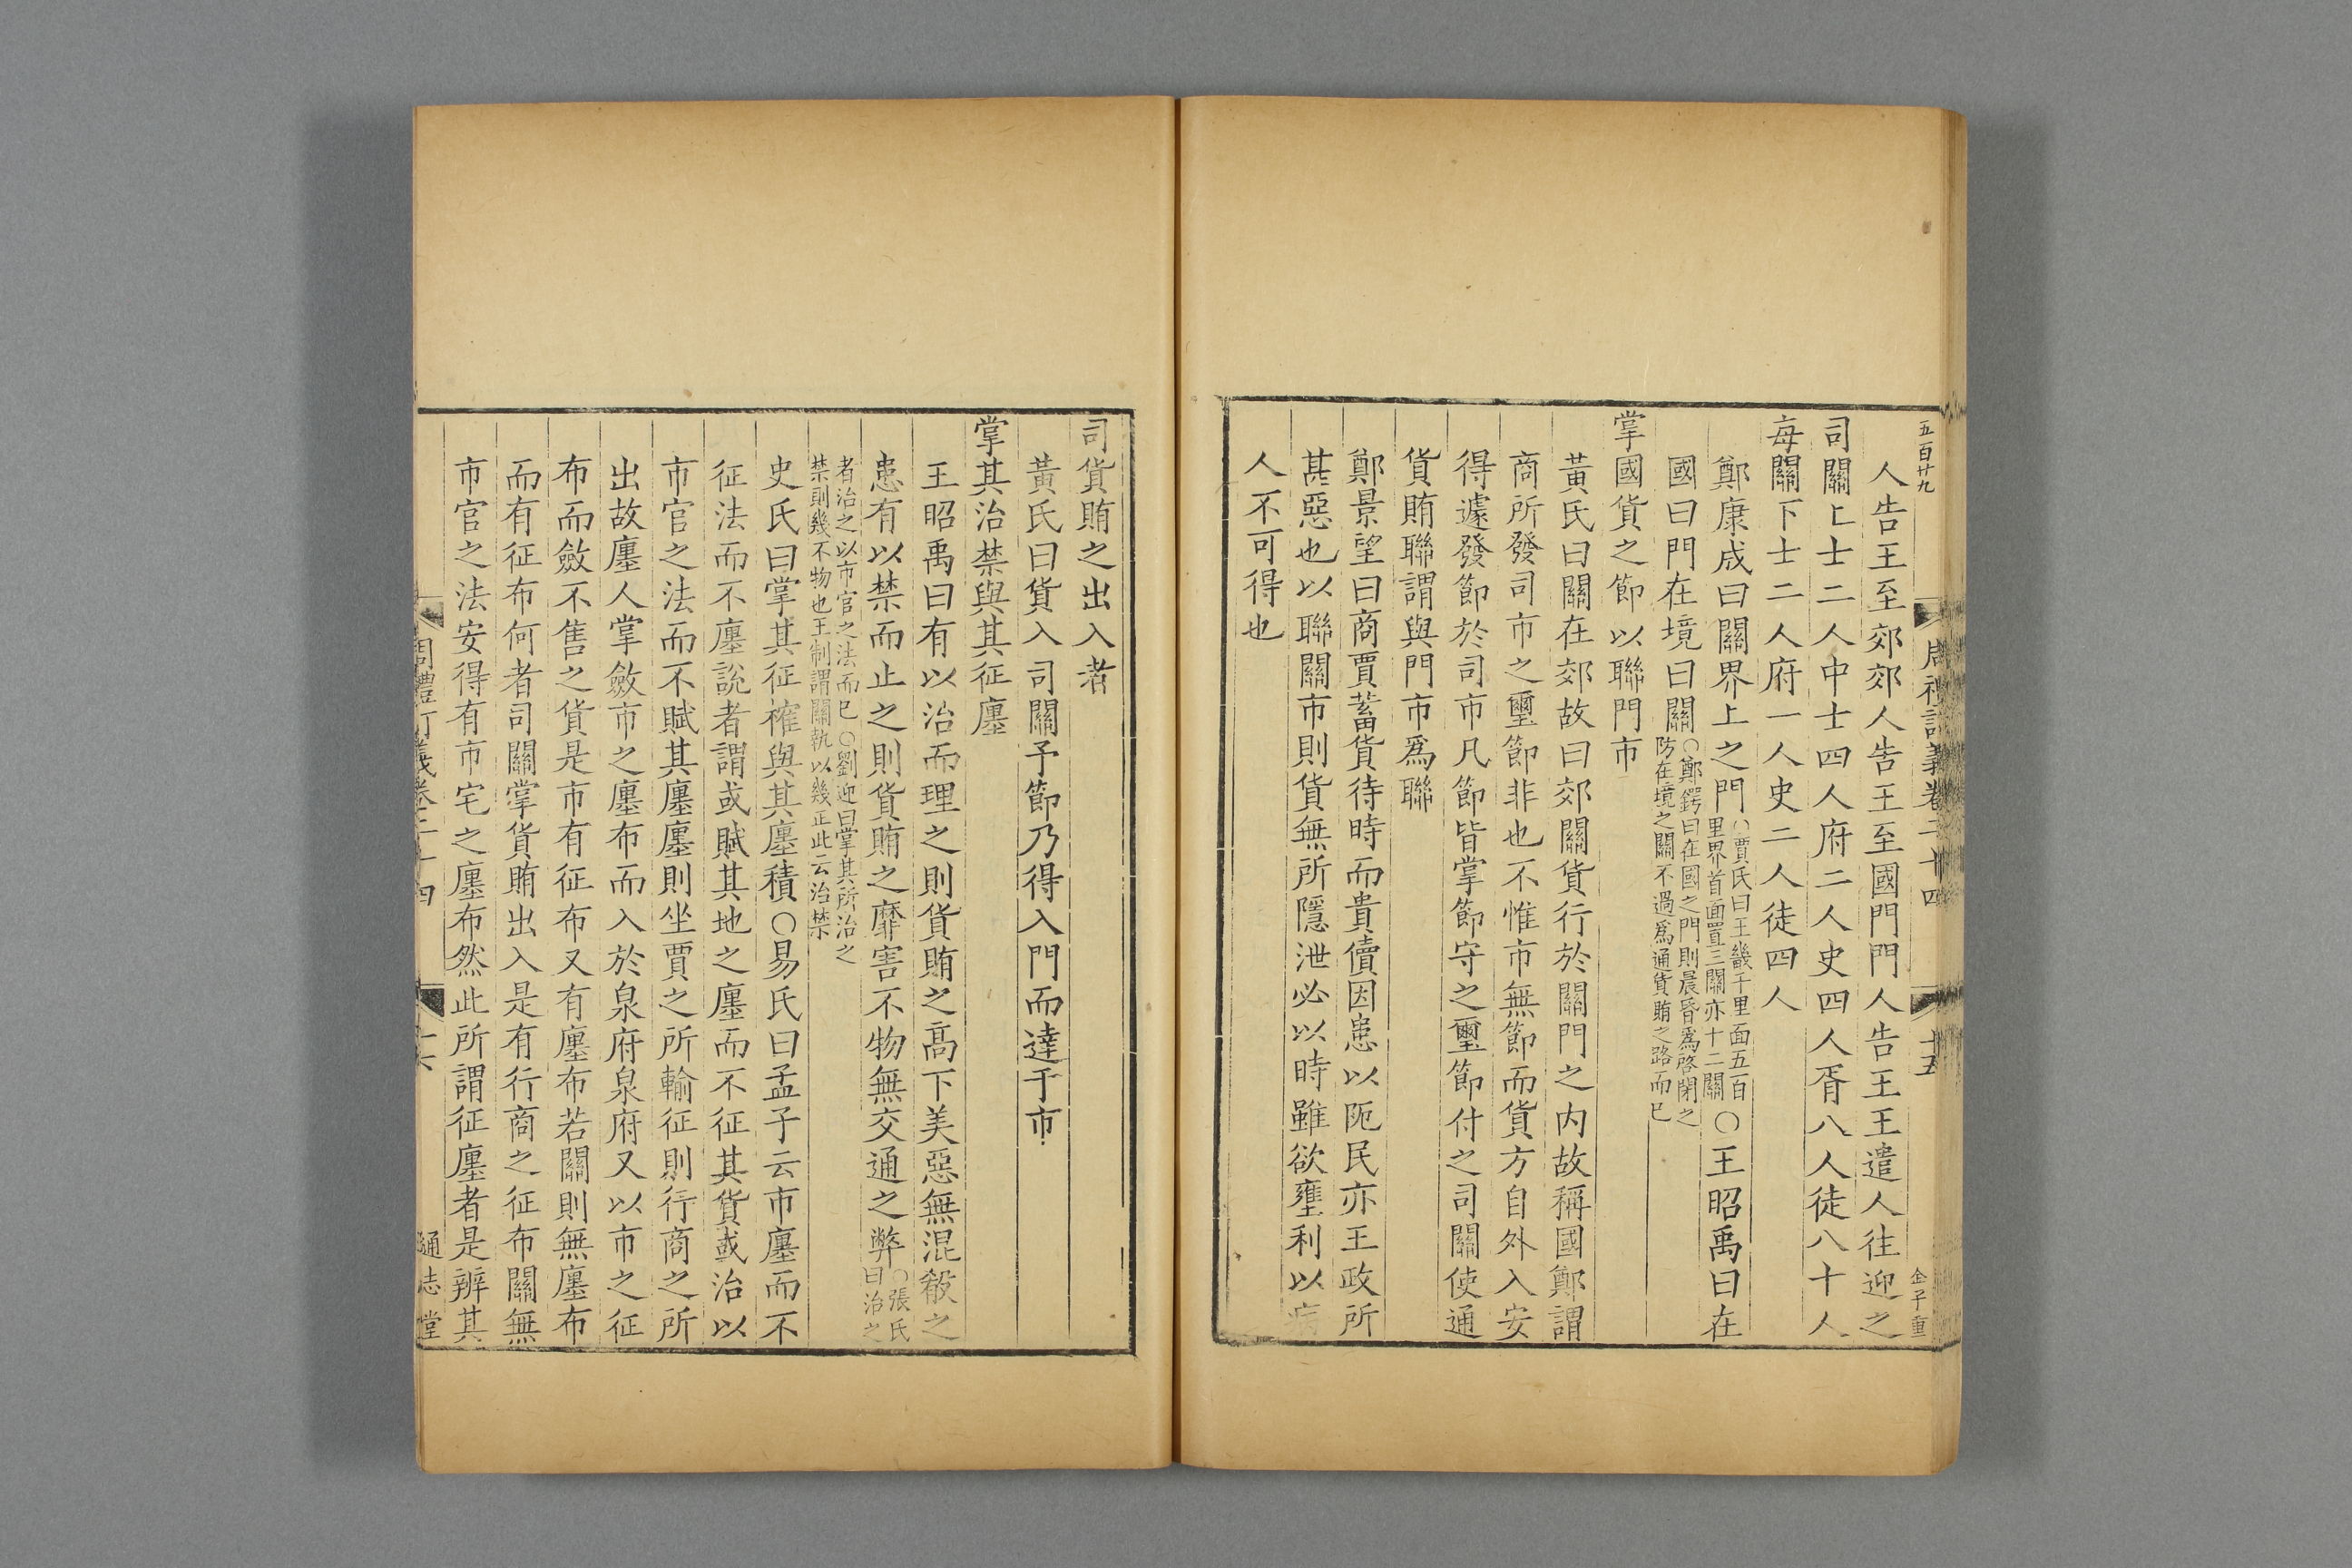 五百廿九
周禮訂義卷二十四
十五
金子重
人告王至郊郊人告王至國門門人告王王遣人往迎之
司關上士二人中士四人府二人史四人胥八人徒八十人
每關下士二人府一人史二人徒四人
鄭康成曰關界上之門○賈氏曰王畿千里面五百里界首面置三關亦十二關○王昭禹曰在
國曰門在境曰關○鄭鍔曰在國之門則晨昏爲啓閉之防在境之關不過爲通貨賄之路而已
掌國貨之節以聯門市
黃氏曰關在郊故曰郊關貨行於關門之内故稱國鄭謂
商所發司市之璽節非也不惟市無節而貨方自外入安
得遽發節於司市凡節皆掌節守之璽節付之司關使通
貨賄聯謂與門市爲聯
鄭景望曰商賈蓄貨待時而貴價因患以阨民亦王政所
甚惡也以聯關市則貨無所隱泄必以時雖欲壅利以病
人不可得也
司貨賄之出入者
黃氏曰貨入司關予節乃得入門而達于市
掌其治禁與其征廛
王昭禹曰有以治而理之則貨賄之高下美惡無混殽之
患有以禁而止之則貨賄之靡害不物無交通之弊○張氏曰治之
者治之以市官之法而已○劉迎曰掌其所治之禁則幾不物也王制謂關執以幾正此云治禁
史氏曰掌其征榷與其廛積○易氏曰孟子云市廛而不
征法而不廛説者謂或賦其地之廛而不征其貨或治以
市官之法而不賦其廛廛則坐賈之所輸征則行商之所
出故廛人掌斂市之廛布而入於泉府泉府又以市之征
布而斂不售之貨是市有征布又有廛布若關則無廛布
而有征布何者司關掌貨賄出入是有行商之征布關無
市官之法安得有市宅之廛布然此所謂征廛者是辨其
周禮訂義卷二十四
十六
通志堂